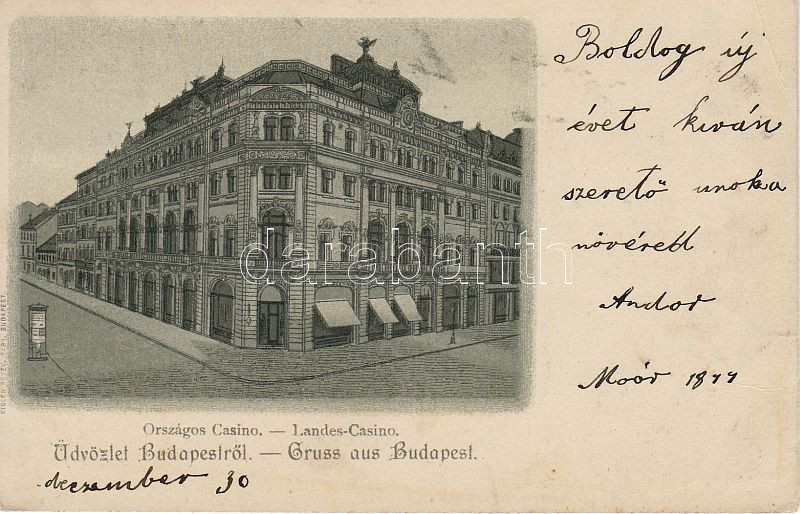 Boldog új
évet kiván
szerető unoka
növéred
Andor
Moór 1899
darabanth
Országos Casino. — Landes-Casino.
Üdvözlet Budapestről. — Gruss aus Budapest.
deczember 30